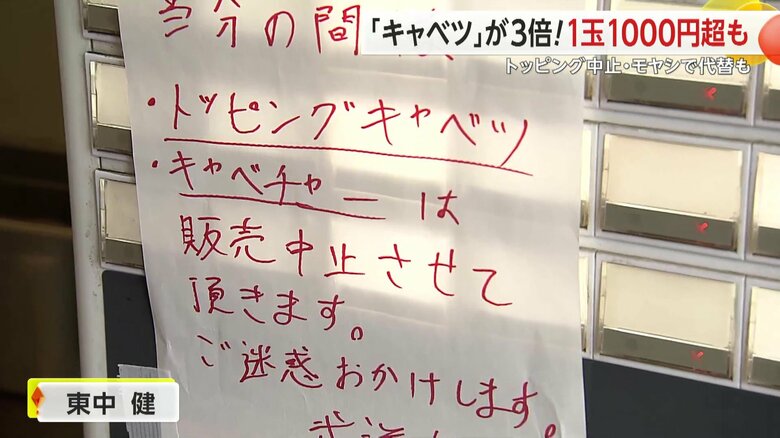 「キャベツ」が3倍!1玉1000円超も
トッピング中止・モヤシで代替も
当分の間
・トッピングキャベツ
・キャベチャーは
販売中止させて
頂きます。
ご迷惑おかけします。
東中 健